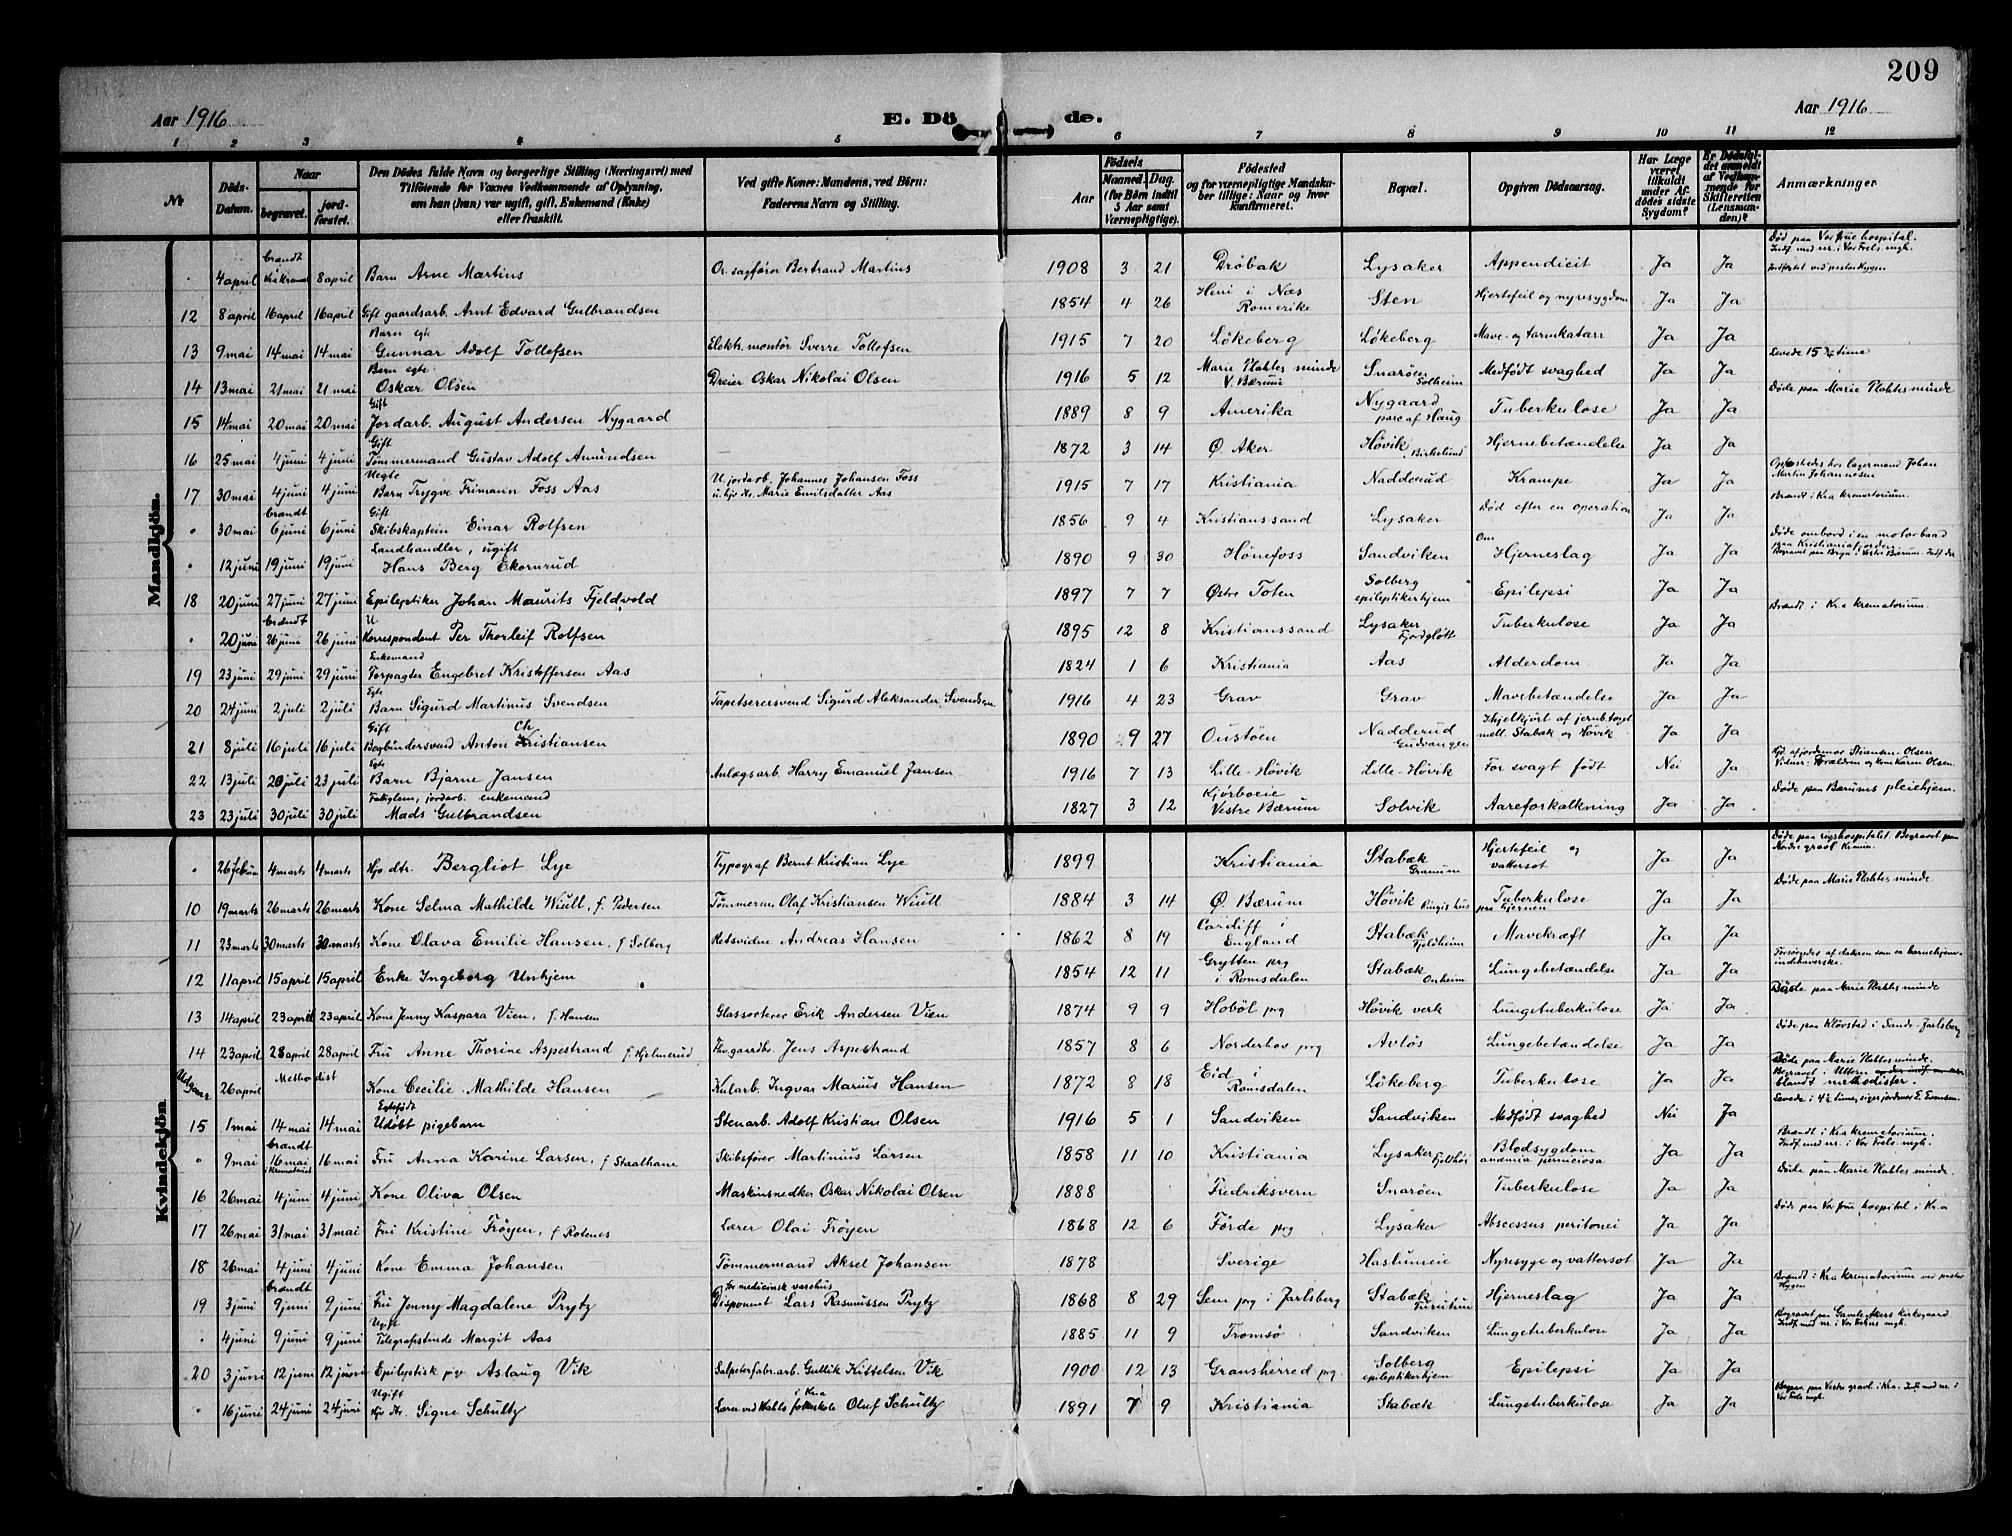 209
Aar 1916 E. Dö de. Aar 1916
1 2 3 4 5 6 7 8 9 10 11 12
№
Döds-Datum.
Naar
begravet.
jord-fæstet.
Den Dödes fulde Navn og borgerlige Stilling (Næringsvei) med
Tilföiende for Voxnes Vedkommende af Oplysning,
om han (hun) var ugift, gift, Enkemand (Enke)
eller fraskilt.
Ved gifte Koner: Mandens, ved Börn:
Faderens Navn og Stilling.
Födsels
Aar
Maaned. Dag.
(for Börn indtil
5 Aar samt
Værnepligtige).
Födested
og for værnepligtige Mandska-
ber tillige: Naar og hvor
konfirmeret.
Bopæl.
Opgiven Dödsaarsag.
Har Læge
været
tilkaldt
under Af-
dödes sidste
Sygdom?
Er Dödsfal-
det anmeldt
af Vedkom-
mende for
Skifteretten
(Lensman-
den)?
Anmærkninger
Mandkjön.
" 4 april brandt Kr.a kremat 8 april Barn Arne Martins Or. sagfører Bertrand Martins 1908 3 21 Drøbak Lysaker Appendicit Ja Ja Død paa Vor frue hospital. Indf. med nr. i Vor Frels. mgh. Jordfæstet ved pastor Hygen
12 8 april 16 april 16 april Gift gaardsarb. Arnt Edvard Gulbrandsen 1854 4 26 Heni i Næs Romerike Sten Hjertefeil og nyresygdom Ja Ja
13 9 mai 14 mai 14 mai Barn egte Gunnar Adolf Tollefsen Elektr. montör Sverre Tollefsen 1915 7 20 Løkeberg Løkeberg Mave- og tarmkatarr Ja Ja
14 13 mai 21 mai 21 mai Barn egte. Oskar Olsen Dreier Oskar Nikolai Olsen 1916 5 12 Marie Plahtes minde V. Bærum Snarøen Solheim Medfødt svaghed Ja Ja Levede 15 3/4 time
15 14 mai 20 mai 20 mai Gift Jordarb. August Andersen Nygaard 1889 8 9 Amerika Nygaard parc af Haug Tuberkulose Ja Ja Døde paa Marie Plahtes minde
16 25 mai 4 juni 4 juni Gift Tømmermand Gustav Adolf Amundsen 1872 3 14 Ø. Aker Høvik Birkelund Hjernebetændelse Ja Ja
17 30 mai 4 juni 4 juni Uegte Barn Trygve Frimann Foss Aas U. jordarb. Johannes Johansen Foss u. hjv. dtr. Marie Emilsdatter Aas 1915 7 17 Kristiania Nadderud Krampe Ja Ja Opfostredes hos lagermand Johan Martin Johannesen
" 30 mai brandt 6 juni 6 juni Gift Skibskaptein Einar Rolfsen 1856 9 4 Kristianssand Lysaker Død efter en operation Ja Ja Brændt i Kr.a krematorium.
" 12 juni 19 juni 19 juni Landhandler, ugift Hans Berg Ekornrud 1890 9 30 Hønefoss Sandviken Om Hjerneslag Ja Ja Døde ombord i en motorbaad paa Kristianiafjorden Begravet paa Bryn i Vestre Bærum. Indf. der
18 20 juni 27 juni 27 juni Epileptiker Johan Maurits Fjeldvold 1897 7 7 Østre Toten Solberg epileptikerhjem Epilepsi Ja Ja
" 20 juni brandt 26 juni 26 juni U. Korrespondent Per Thorleif Rolfsen 1895 12 8 Kristianssand Lysaker Fjordgløtt Tuberkulose Ja Ja Brændt i Kr.a krematorium.
19 23 juni 29 juni 29 juni Enkemand Forpagter Engebret Kristoffersen Aas 1824 1 6 Kristiania Aas Alderdom Ja Ja
20 24 juni 2 juli 2 juli Egte Barn Sigurd Martinus Svendsen Tapetserersvend Sigurd Aleksander Svendsen 1916 4 23 Grav Grav Mavebetændelse Ja Ja
21 8 juli 16 juli 16 juli Gift Bogbindersvend Anton Ch Kristiansen 1890 9 27 Oustøen Nadderud Gudvangen Ihjelkjørt af jernb. toget mell. Stabæk og Høvik Ja Ja
22 13 juli 20 juli 23 juli Egte Barn Bjarne Jansen Anlægsarb. Harry Emanuel Jansen 1916 7 13 Lille-Høvik Lille-Høvik For svagt født Nei Ja Gd. af jordmor Stiansen-Olsen. Vidner: Forældrene og kone Karen Olsen.
23 23 juli 30 juli 30 juli Fattiglem, jordarb. enkemand Mads Gulbrandsen 1827 3 12 Kjørboeie Vestre Bærum Solvik Aareforkalkning Ja Ja Døde paa Bærums pleiehjem.
Kvindekjön
" 26 februar 4 marts 4 marts Hjv. dtr. Bergliot Lye Typograf Bernt Kristian Lye 1899 Kristiania Stabæk Granum Hjertefeil og vattersot Ja Ja Døde paa rigshospitalet Begravet paa Nordre gravl. Kr.ania.
10 19 marts 26 marts 26 marts Kone Selma Mathilde Wiull, f. Pedersen Tømmerm. Olaf Kristiansen Wiull 1884 3 14 Ø. Bærum Høvik Ringishus Tuberkulose paa hjernen Ja Ja Døde paa Marie Plahtes minde.
11 23 marts 30 marts 30 marts Kone Olava Emilie Hansen, f. Solberg Retsvidne Andreas Hansen 1862 8 19 Cardiff i England Stabæk Fjeldheim Mavekræft Ja Ja
12 11 april 15 april 15 april Enke Ingeborg Unhjem 1854 12 11 Grytten prg i Romsdalen Stabæk Onheim Lungebetændelse Ja Ja Forsørgedes af datteren som er barnehjems-indehaverske.
13 14 april 23 april 23 april Kone Jenny Kaspara Vien, f. Hansen Glassorterer Erik Andersen Vien 1874 9 9 Hobøl prg Høvik verk Lungetuberkulose Ja Ja Døde paa Marie Plahtes minde
14 23 april 28 april 28 april Fru Anne Thorine Aspestrand f. Hjelmerud Fhv. gaardbr. Jens Aspestrand 1857 8 6 Norderhov prg Avløs Lungebetændelse Ja Ja Døde paa Kløvstad i Sande Jarlsberg
Udgaar 26 april Methodist Kone Cecilie Mathilde Hansen Kularb. Ingvar Marius Hansen 1872 8 18 Eid i Romsdalen Løkeberg Tuberkulose Ja Ja Døde paa Marie Plahtes minde. Begravet i Ullern blandt methodister.
15 1 mai 14 mai 14 mai Egtefødt Udøbt pigebarn Stenarb. Adolf Kristian Olsen 1916 5 1 Sandviken Sandviken Medfødt svaghed Nei Ja Levede i 4½ time, siger jordmor E. Evensen.
" 9 mai brandt 16 mai i Krematoriet 16 mai Fru Anna Karine Larsen, f. Staalhane Skibsfører Martinius Larsen 1858 11 10 Kristiania Lysaker Fjeldhøi Blodsygdom anæmia perniciosa Ja Ja Brændt i Kr.a krematorium. Indf. med nr. i Vor Frels. mgh.
16 26 mai 4 juni 4 juni Kone Oliva Olsen Maskinsnedker Oskar Nikolai Olsen 1888 Fredriksvern Snarøen Tuberkulose Ja Ja Døde paa Marie Plahtes minde.
17 26 mai 31 mai 31 mai Fru Kristine Frøyen, f. Rotenes Lærer Olai Frøyen 1868 12 6 Førde prg Lysaker Abscessus peritonei Ja Ja Døde paa Vor frue hospital i Kr.a
18 26 mai 4 juni 4 juni Kone Emma Johansen Tømmermand Aksel Johansen 1878 Sverige Haslumeie Nyresyge og vattersot Ja Ja
19 3 juni brandt 9 juni 9 juni Fru Jenny Magdalene Prytz for medicinsk varehus Disponent Lars Rasmussen Prytz 1868 8 29 Sem prg i Jarlsberg Stabæk Hjerneslag Ja Ja Brændt i Kr.a krematorium ved pastor Hygen
" 4 juni 9 juni 9 juni Ugift Telegrafistinde Margit Aas 1885 11 9 Tromsø Sandviken Lungetuberkulose Ja Ja Begravet paa Gamle Akers kirkegaard Indf. med nr. i Vor Frelsers mgh.
20 3 juni 12 juni 12 juni Epileptisk pige Aslaug Vik Salpeterfabr.arb. Gullik Kittelsen Vik 1900 12 13 Gransherred prg Solberg epileptikerhjem Epilepsi Ja Ja
" 16 juni 24 juni 24 juni Ugift Hjv. dtr. Signe Schultz Lærer ved Kahls folkeskole i Kr.a Oluf Schultz 1891 7 9 Kristiania Stabæk Lungetuberkulose Ja Ja Begrav. paa Vestre gravl. i Kr.a. Indf. med nr. i Vor Frels. mgh.